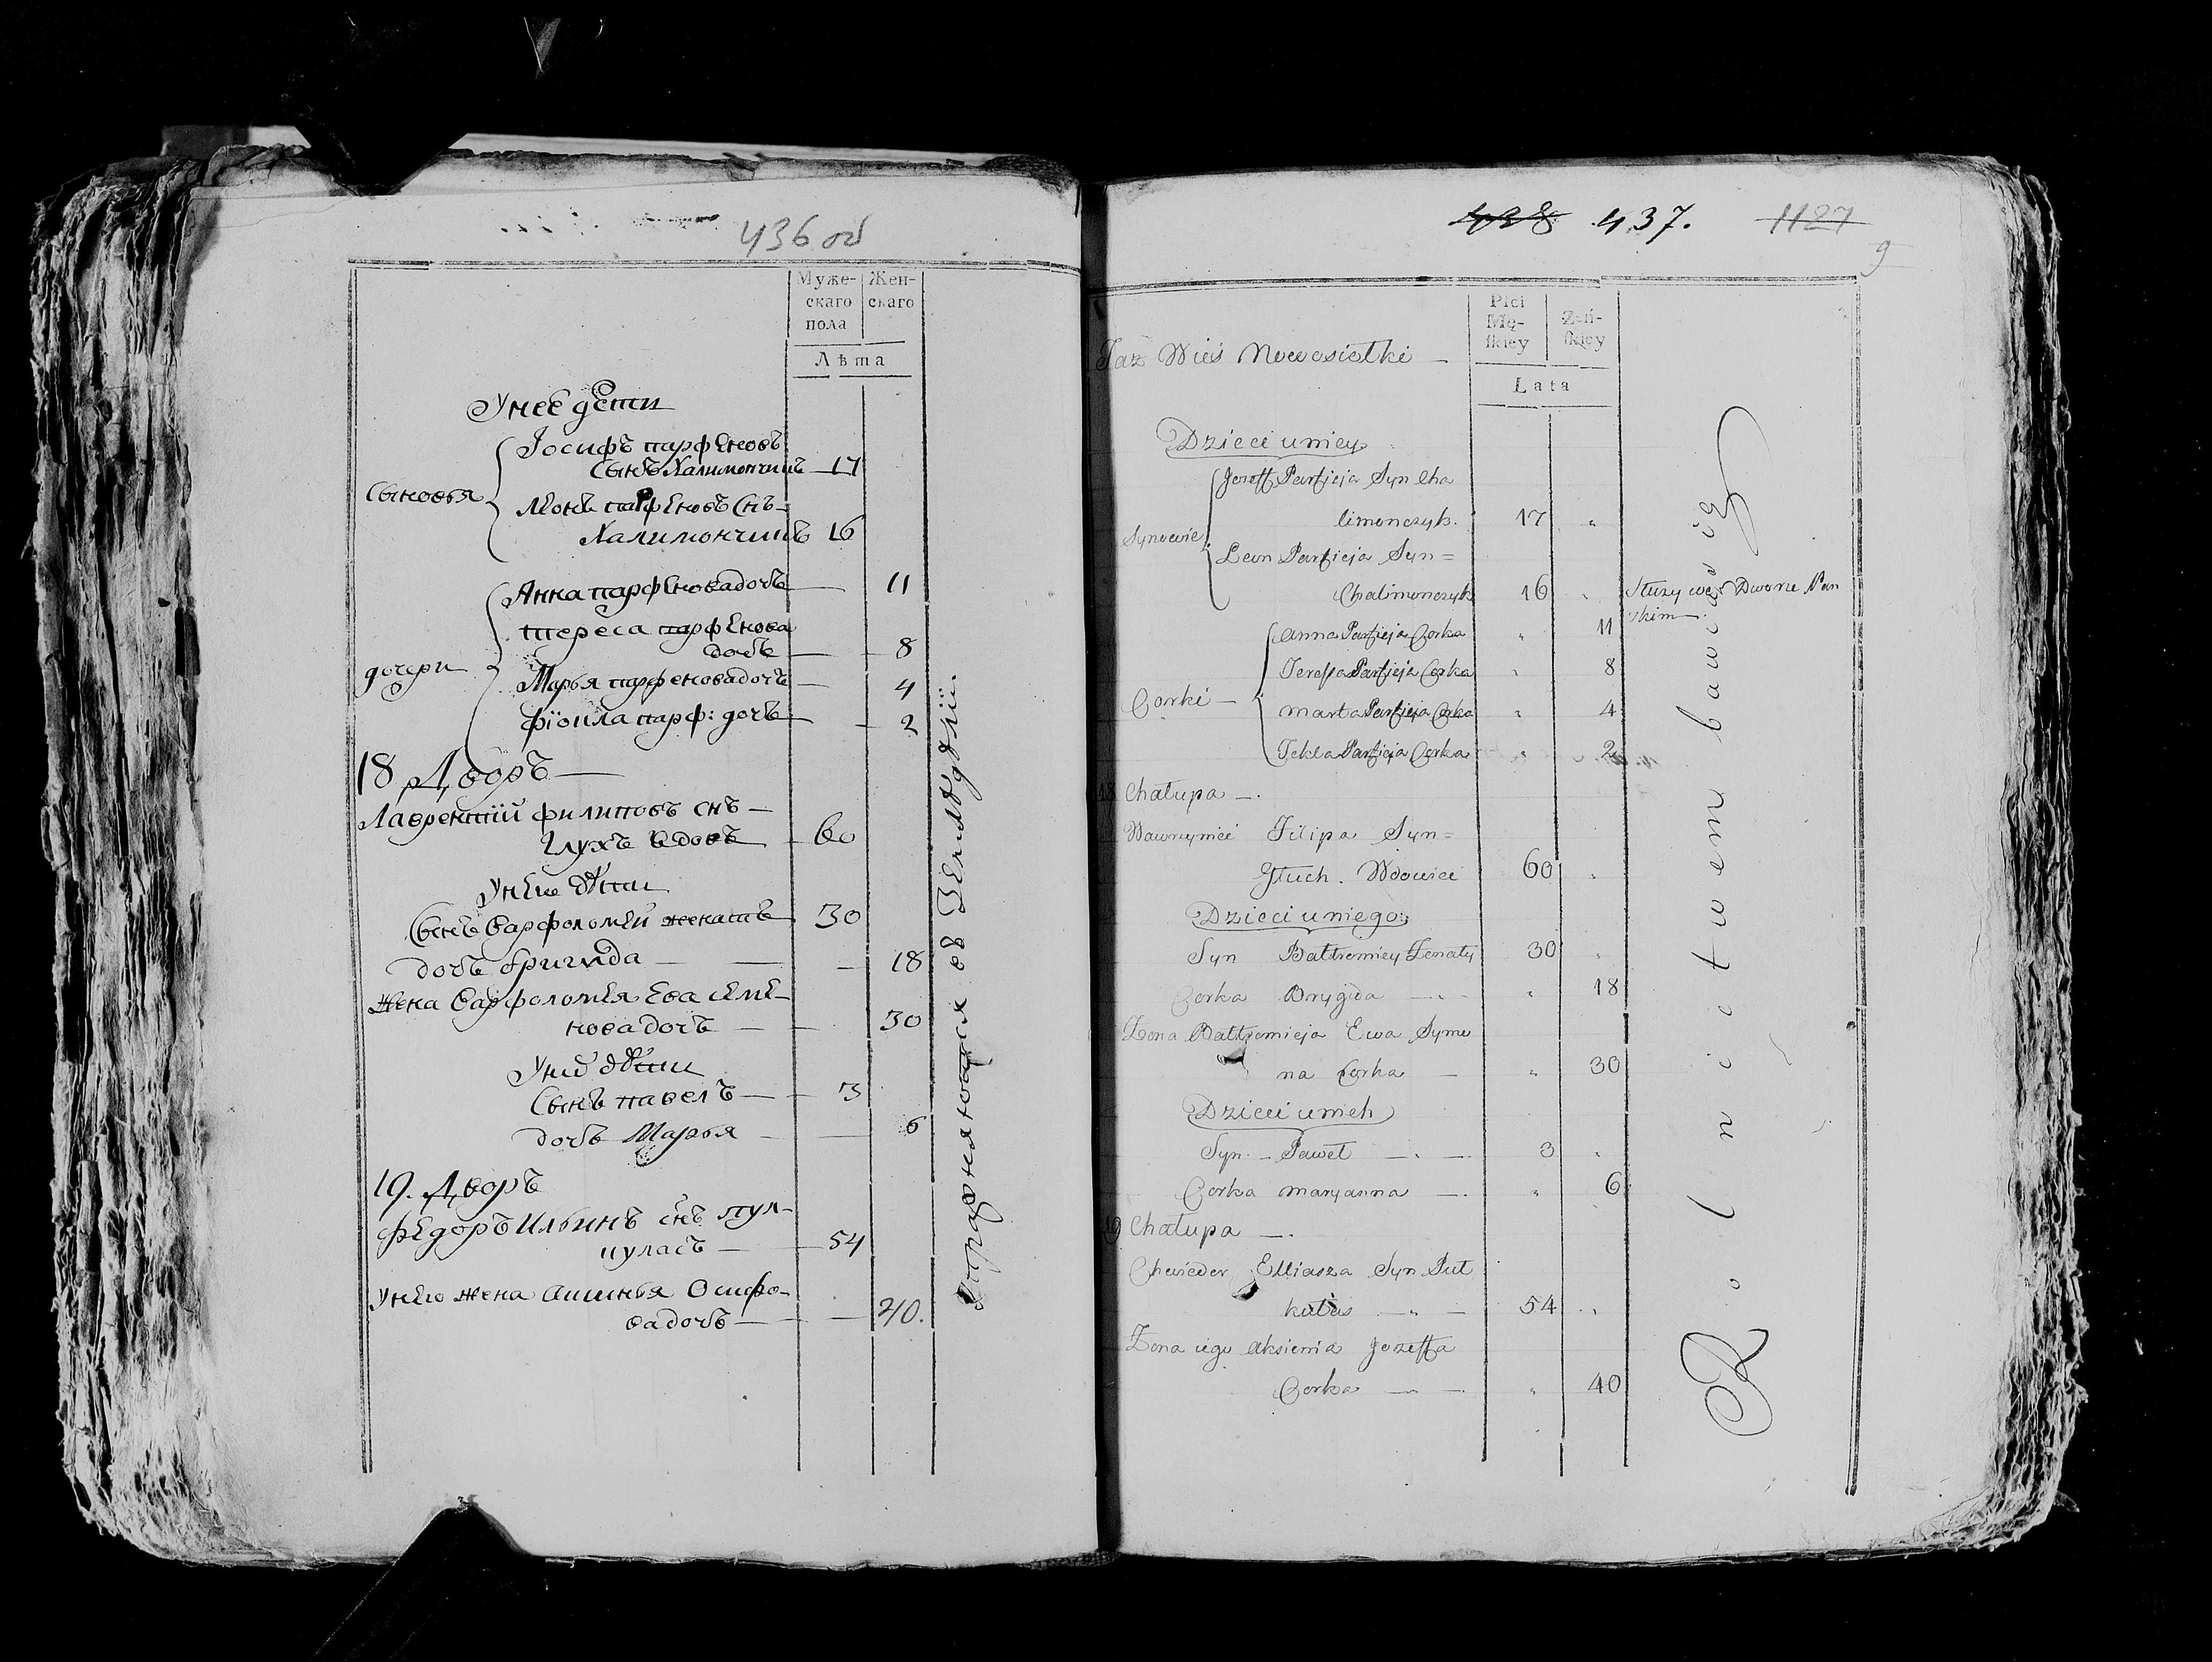 436 об
Муже-
скаго
пола
Жен-
скаго
Лѣта
У нее дети
Іосифъ парфеновъ
сынъ Халимончикъ 17
сыновья
Леонъ парфеновъ снъ
Халимончикъ 16
Анна парфенова дочь 11
тереса парфенова
дочь 8
дочери
Марья парфенова дочь 4
фіокла парф: дочь 2
18 Дворъ
Лаврентій филиповъ снъ
Глухъ вдовъ 60
У него дѣти
Сынъ варфоломей женатъ 30
дочь бригида 18
жена варфоломея Ева семе-
нова дочь 30
У них дѣти
Сынъ павелъ 3
дочь Марья 6
19. Дворъ
федоръ Ильинъ снъ
54
У него жена
ва дочь 40.
Упражняются въ Земледѣліи.
438 437. 1127
9
Płci
Mę-
skiey
Żeń-
skiey
Lata
Taż Wieś Nowosiołki
Dzieci u niey
Jozeff Parfieja Syn Cha
limonczyk. 17
Synowie
Leon Parfieja Syn =
Chalimonczyk 16 Służy we Dworze Pan
skim
Anna Parfieja Corka 11
Teressa Parfieja Corka 8
Corki
Marta Parfieja Corka 4
Tekla Parfieja Corka 2
18 Chałupa
Wawrzyniec Filipa Syn =
Głuch. Wdowiec 60
Dzieci u niego
Syn Bałtromiey Żonaty 30
Corka Brygida 18
Żona Bałtromieja Ewa Symo
na Corka 30
Dzieci u nich
Syn Paweł 3
Corka Maryanna 6
19 Chałupa
Chwieder Elliasza Syn Puł
kułas 54
Żona iego Aksienia Jozeffa
Corka 40
Rolnictwem bawią się